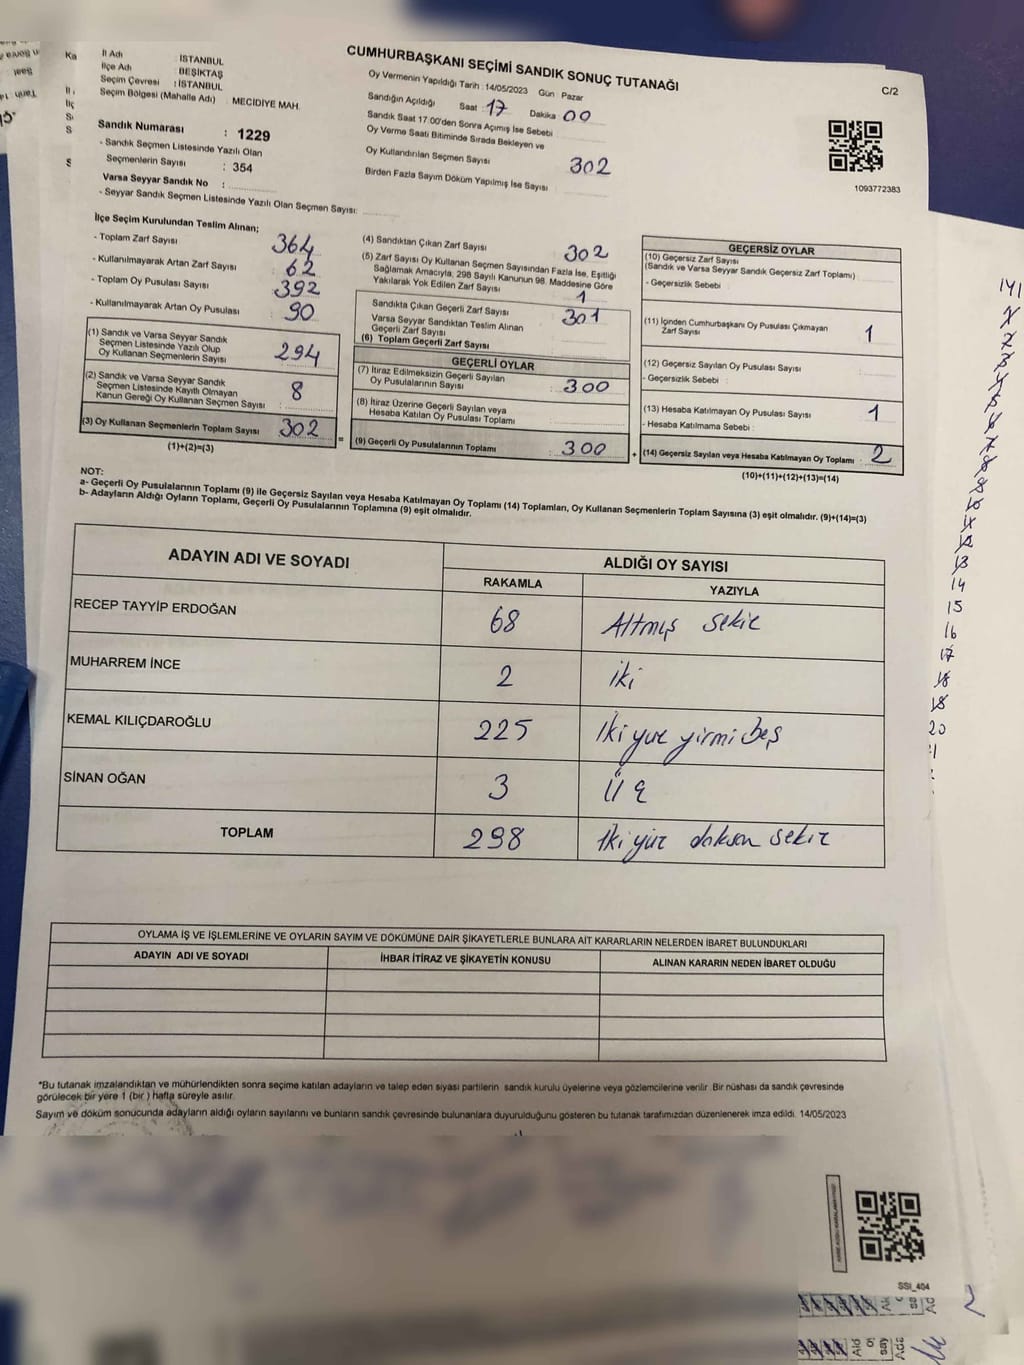 CUMHURBAŞKANI SEÇİMİ SANDIK SONUÇ TUTANAĞI
C/2
İl Adı : İSTANBUL
İlçe Adı : BEŞİKTAŞ
Seçim Çevresi : İSTANBUL
Seçim Bölgesi (Mahalle Adı) : MECİDİYE MAH.
Sandık Numarası : 1229
- Sandık Seçmen Listesinde Yazılı Olan
Seçmenlerin Sayısı : 354
Varsa Seyyar Sandık No :
- Seyyar Sandık Seçmen Listesinde Yazılı Olan Seçmen Sayısı:
Oy Vermenin Yapıldığı Tarih : 14/05/2023 Gün : Pazar
Sandığın Açıldığı Saat : 17 Dakika : 00
Sandık Saat 17:00'den Sonra Açımış İse Sebebi
Oy Verme Saati Bitiminde Sırada Bekleyen ve
Oy Kullandırılan Seçmen Sayısı 302
Birden Fazla Sayım Döküm Yapılmış İse Sayısı
1093772383
İlçe Seçim Kurulundan Teslim Alınan;
- Toplam Zarf Sayısı 364
- Kullanılmayarak Artan Zarf Sayısı 62
- Toplam Oy Pusulası Sayısı 392
- Kullanılmayarak Artan Oy Pusulası 90
(1) Sandık ve Varsa Seyyar Sandık
Seçmen Listesinde Yazılı Olup
Oy Kullanan Seçmenlerin Sayısı 294
(2) Sandık ve Varsa Seyyar Sandık
Seçmen Listesinde Kayıtlı Olmayan
Kanun Gereği Oy Kullanan Seçmen Sayısı : 8
(3) Oy Kullanan Seçmenlerin Toplam Sayısı 302
(1)+(2)=(3)
(4) Sandıktan Çıkan Zarf Sayısı 302
(5) Zarf Sayısı Oy Kullanan Seçmen Sayısından Fazla İse, Eşitliği
Sağlamak Amacıyla, 298 Sayılı Kanunun 98. Maddesine Göre
Yakılarak Yok Edilen Zarf Sayısı 1
Sandıkta Çıkan Geçerli Zarf Sayısı : 301
Varsa Seyyar Sandıktan Teslim Alınan
Geçerli Zarf Sayısı
(6) Toplam Geçerli Zarf Sayısı
GEÇERLİ OYLAR
(7) İtiraz Edilmeksizin Geçerli Sayılan
Oy Pusulalarının Sayısı : 300
(8) İtiraz Üzerine Geçerli Sayılan veya
Hesaba Katılan Oy Pusulası Toplamı
= (9) Geçerli Oy Pusulalarının Toplamı : 300
GEÇERSİZ OYLAR
(10) Geçersiz Zarf Sayısı
(Sandık ve Varsa Seyyar Sandık Geçersiz Zarf Toplamı)
- Geçersizlik Sebebi :
(11) İçinden Cumhurbaşkanı Oy Pusulası Çıkmayan
Zarf Sayısı : 1
(12) Geçersiz Sayılan Oy Pusulası Sayısı
- Geçersizlik Sebebi :
(13) Hesaba Katılmayan Oy Pusulası Sayısı : 1
- Hesaba Katılmama Sebebi :
+ (14) Geçersiz Sayılan veya Hesaba Katılmayan Oy Toplamı : 2
(10)+(11)+(12)+(13)=(14)
NOT:
a- Geçerli Oy Pusulalarının Toplamı (9) ile Geçersiz Sayılan veya Hesaba Katılmayan Oy Toplamı (14) Toplamları, Oy Kullanan Seçmenlerin Toplam Sayısına (3) eşit olmalıdır. (9)+(14)=(3)
b- Adayların Aldığı Oyların Toplamı, Geçerli Oy Pusulalarının Toplamına (9) eşit olmalıdır.
ADAYIN ADI VE SOYADI
ALDIĞI OY SAYISI
RAKAMLA YAZIYLA
RECEP TAYYİP ERDOĞAN 68 Altmış sekiz
MUHARREM İNCE 2 iki
KEMAL KILIÇDAROĞLU 225 İki yüz yirmi beş
SİNAN OĞAN 3 Üç
TOPLAM 298 İki yüz doksan sekiz
OYLAMA İŞ VE İŞLEMLERİNE VE OYLARIN SAYIM VE DÖKÜMÜNE DAİR ŞİKAYETLERLE BUNLARA AİT KARARLARIN NELERDEN İBARET BULUNDUKLARI
ADAYIN ADI VE SOYADI İHBAR İTİRAZ VE ŞİKAYETİN KONUSU ALINAN KARARIN NEDEN İBARET OLDUĞU
*Bu tutanak imzalandıktan ve mühürlendikten sonra seçime katılan adayların ve talep eden siyasi partilerin sandık kurulu üyelerine veya gözlemcilerine verilir. Bir nüshası da sandık çevresinde
görülecek bir yere 1 (bir) hafta süreyle asılır.
Sayım ve döküm sonucunda adayların aldığı oyların sayılarını ve bunların sandık çevresinde bulunanlara duyurulduğunu gösteren bu tutanak tarafımızdan düzenlenerek imza edildi. 14/05/2023
SSI_404
141
13
14
15
16
17
18
20